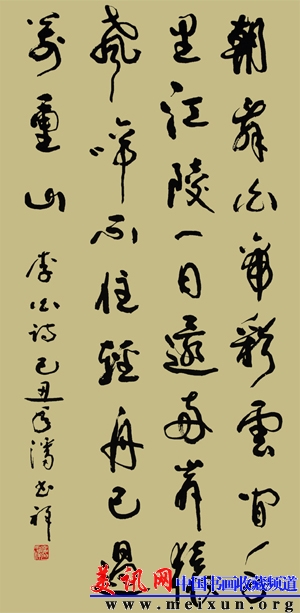 朝辞白帝彩雲间千
里江陵一日還两岸猿
聲啼不住輕舟已過
萬重山
李白诗己丑年潘书祥
美讯网 中国书画收藏频道
www.meixun.org